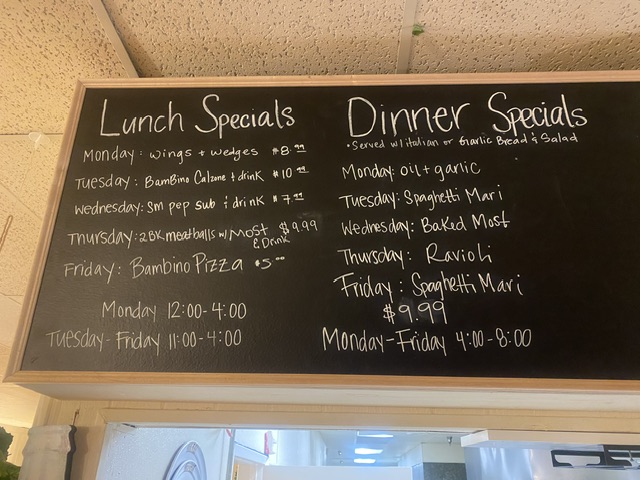 Lunch Specials
Monday: wings + wedges $8.99
Tuesday: BamBino Calzone + drink $10.99
Wednesday: Sm pep sub & drink $7.99
Thursday: 2 BK meatballs w/ Most $9.99
& Drink
Friday: Bambino Pizza $5.00
Monday 12:00-4:00
Tuesday-Friday 11:00-4:00
Dinner Specials
•Served w/ italian or Garlic Bread & Salad
Monday: oil + garlic
Tuesday: Spaghetti Mari
Wednesday: Baked Most
Thursday: Ravioli
Friday: Spaghetti Mari
$9.99
Monday-Friday 4:00-8:00